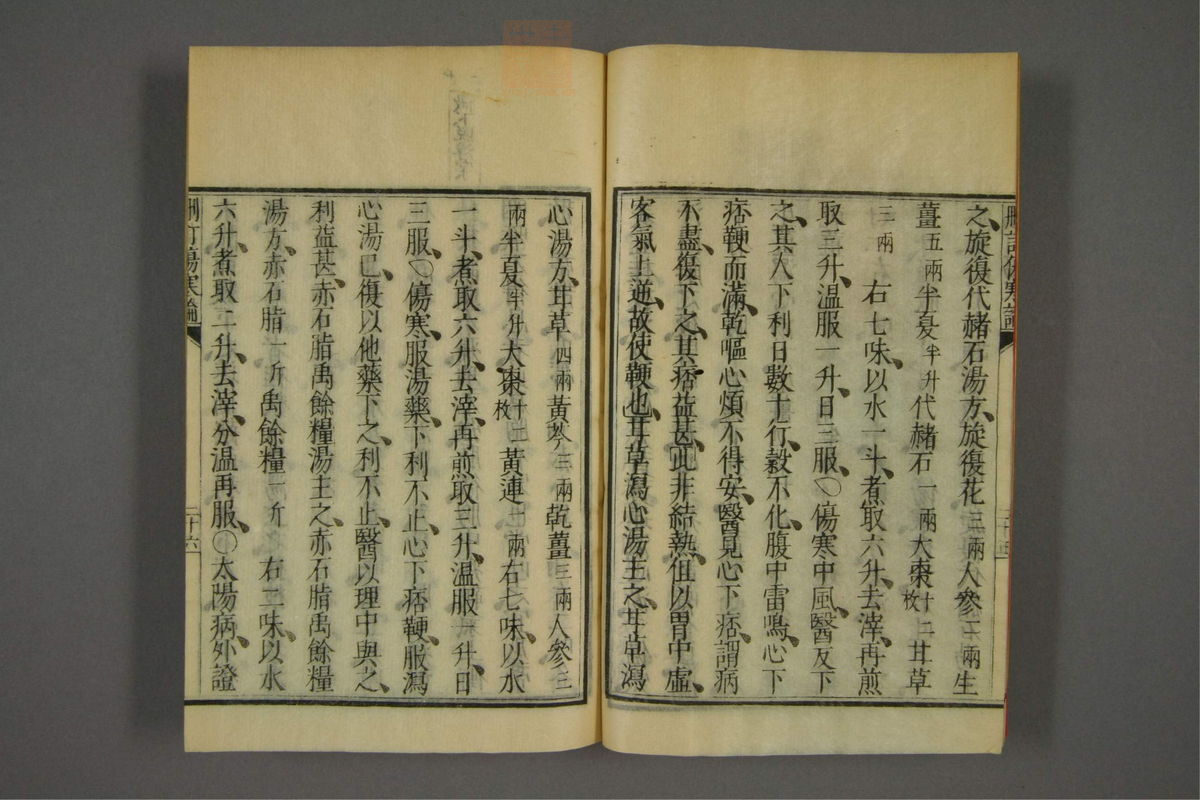 之旋復代赭石湯方旋復花三兩人參二兩生
薑五兩半夏半升代赭石一兩大棗十二枚甘草
三兩 右七味以水一斗煮取六升去滓再煎
取三升溫服一升日三服○傷寒中風醫反下
之其人下利日數十行穀不化腹中雷鳴心下
痞鞕而滿乾嘔心煩不得安醫見心下痞謂病
不盡復下之其痞益甚此非結熱但以胃中虛
客氣上逆故使鞕也甘草瀉心湯主之甘草瀉
心湯方甘草四兩黃芩三兩乾薑三兩人參三
兩半夏半升大棗十二枚黃連一兩右七味以水
一斗煮取六升去滓再煎取三升溫服一升日
三服○傷寒服湯藥下利不止心下痞鞕服瀉
心湯已復以他藥下之利不止醫以理中與之
利益甚赤石脂禹餘糧湯主之赤石脂禹餘糧
湯方赤石脂一斤禹餘糧一斤 右二味以水
六升煮取二升去滓分溫再服○太陽病外證
刪訂傷寒論 二十六